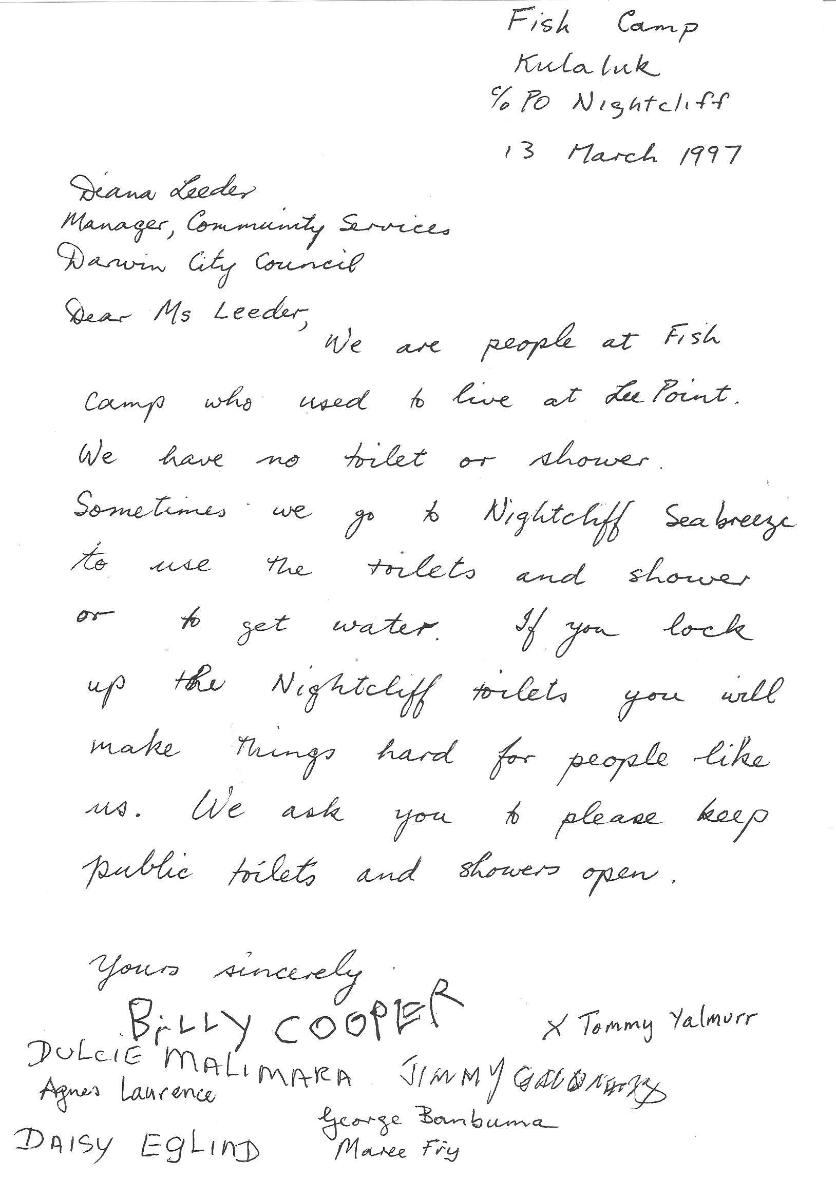 Fish Camp
Kulaluk
c/o PO Nightcliff
13 March 1997
Diana Leeder
Manager, Community Services
Darwin City Council
Dear Ms Leeder,
We are people at Fish
Camp who used to live at Lee Point.
We have no toilet or shower.
Sometimes we go to Nightcliff Seabreeze
to use the toilets and shower
or to get water. If you lock
up the Nightcliff toilets you will
make things hard for people like
us. We ask you to please keep
public toilets and showers open.
Yours sincerely
BiLLY COOPER
X Tommy Yalmurr
DULCIE MALIMARA
JIMMY
Agnes Laurence
George Banbuma
DAISY EGLIND
Maree Fry